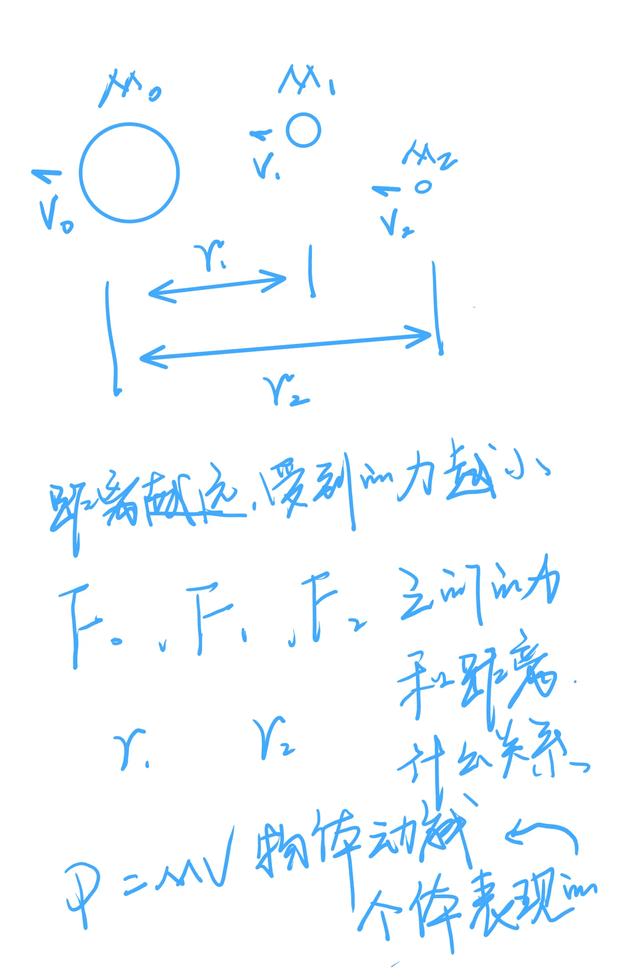 M₀ M₁
M₂
V₀ V₁ V₂
r₁
r₂
距离越远,受到的力越小
F₀、F₁、F₂之间的力
和距离.
r₁ r₂ 什么关系、
P=mV 物体动越
个体表现的